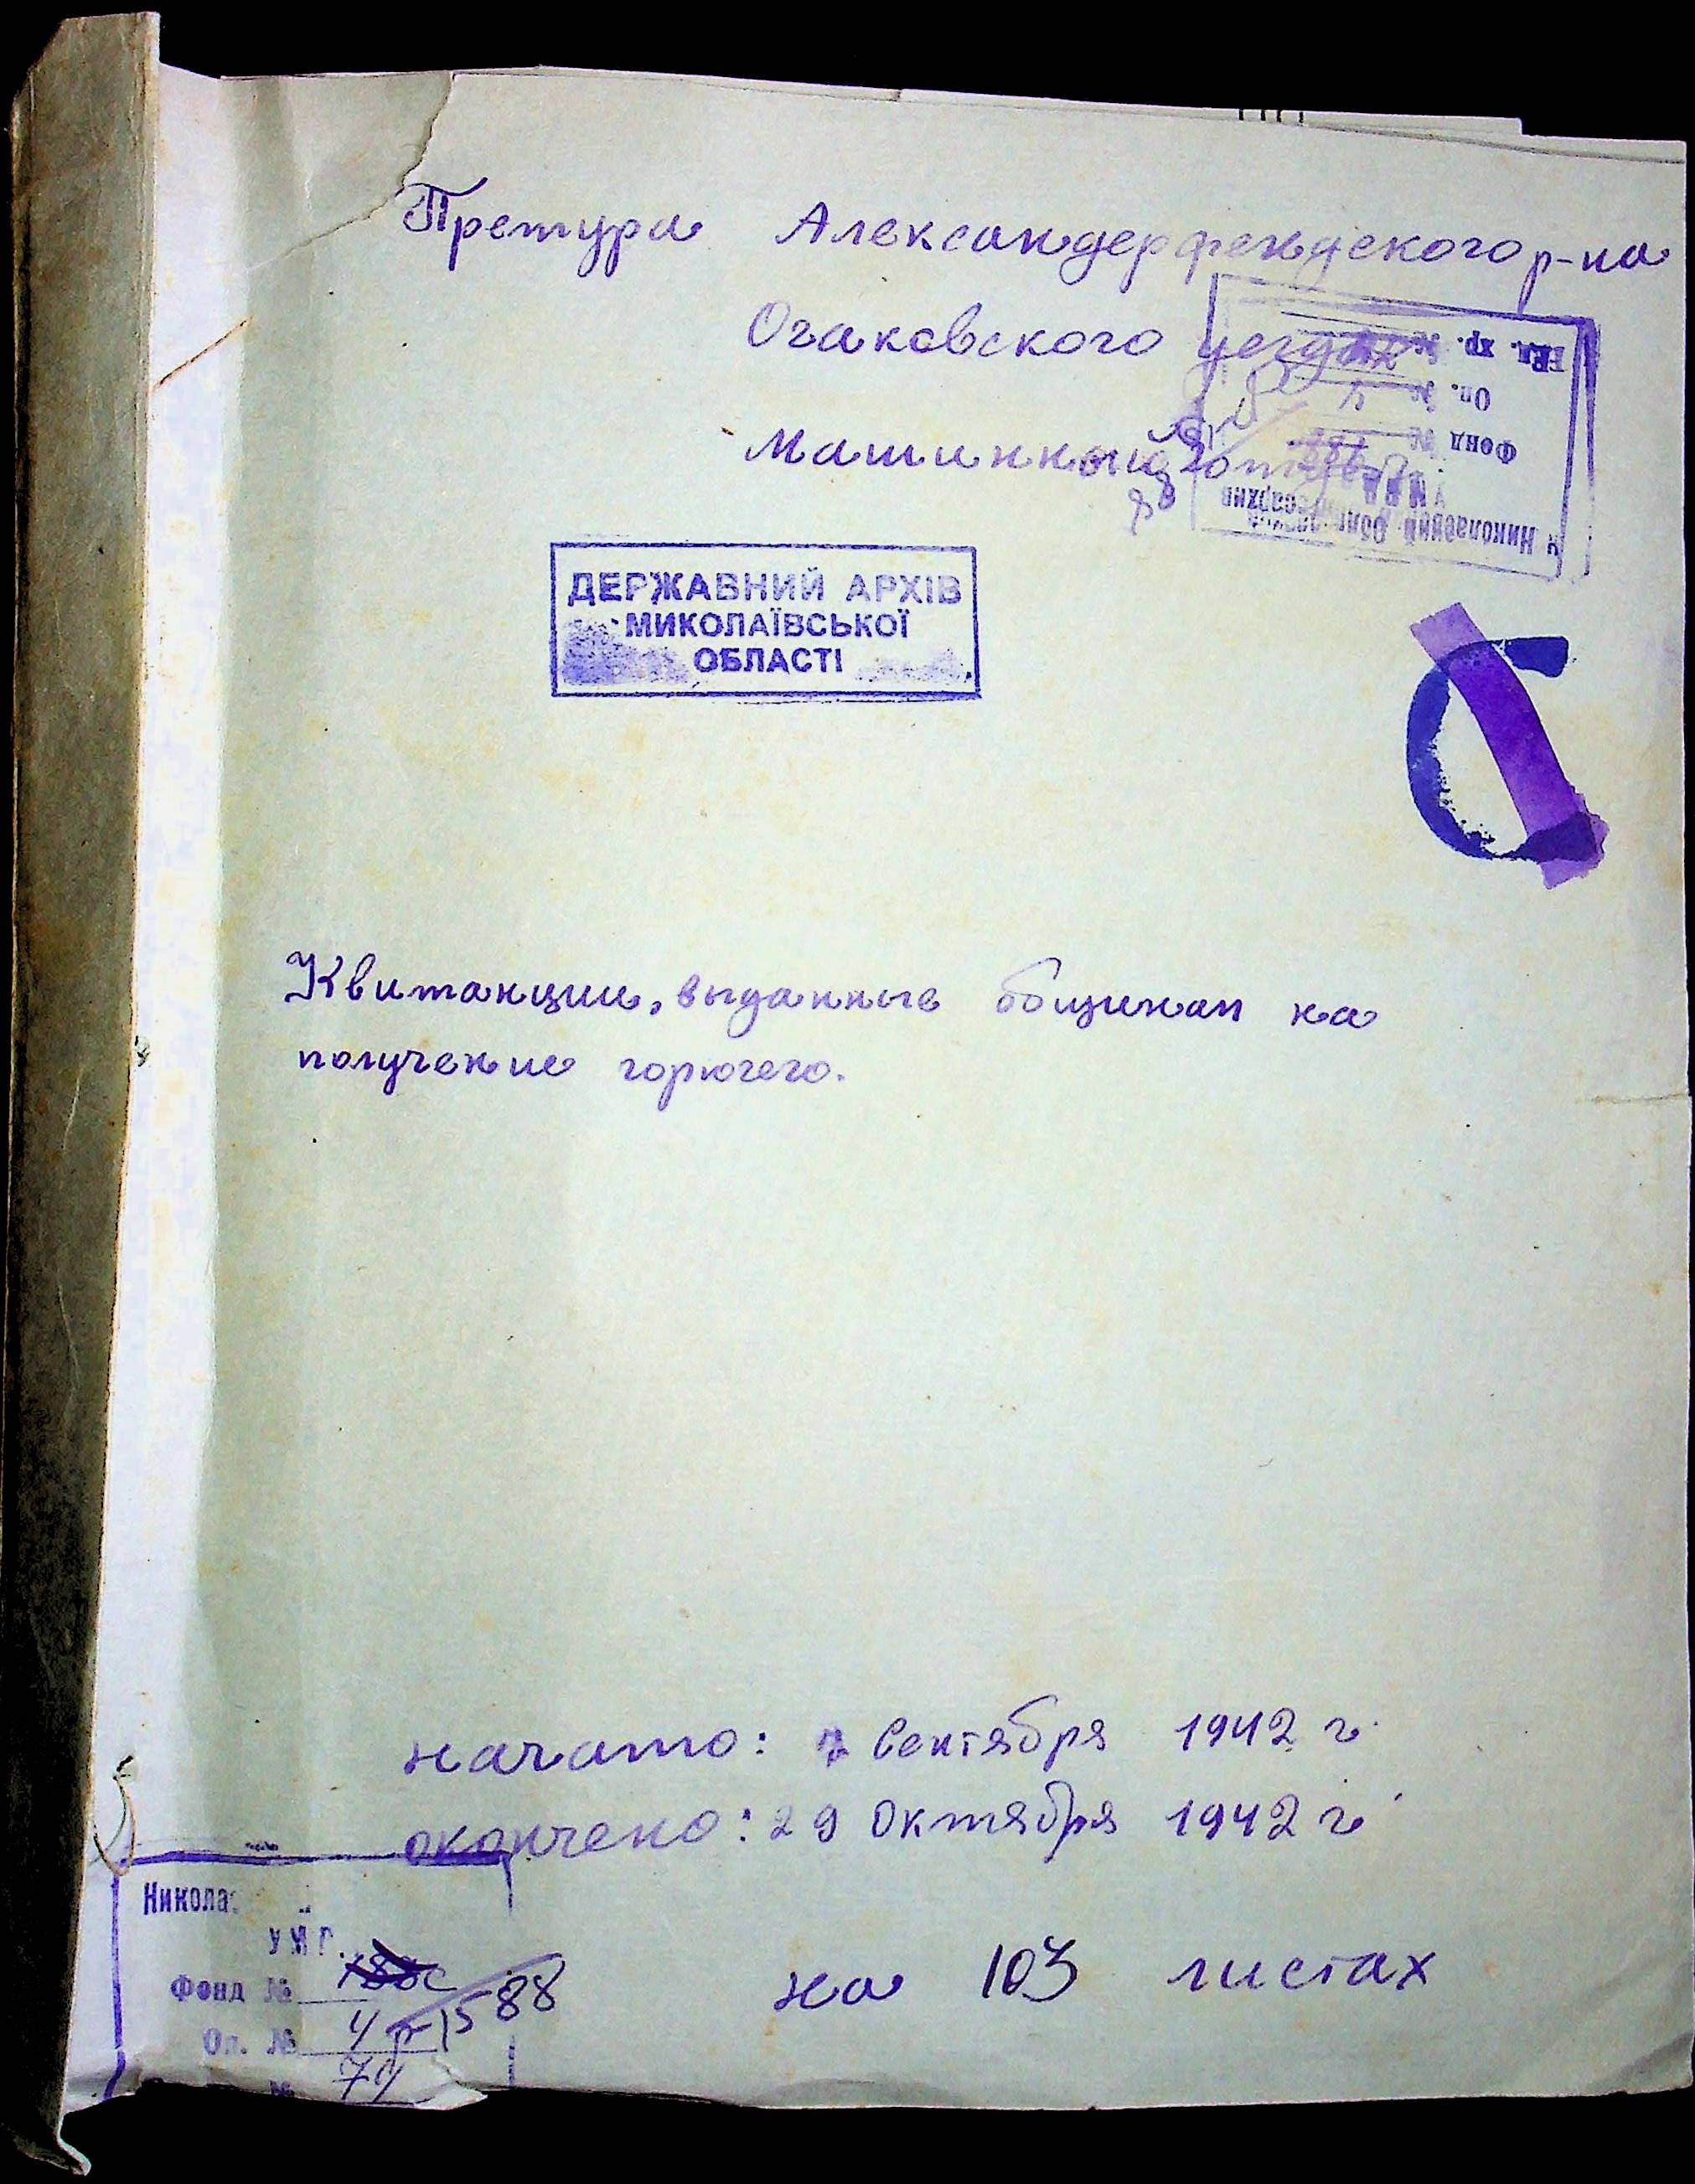 Претура Александерфельдского р-на
Очаковского уезда
Машинный отдел
Ед. хр. №
Оп. №
Фонд №
Николаевский Облгосархив
ДЕРЖАВНИЙ АРХІВ
МИКОЛАЇВСЬКОЇ
ОБЛАСТІ
Квитанции, выданные общинам на
получение горючего.
начато: 7 Сентября 1942 г.
окончено: 29 Октября 1942 г.
Фонд №
р-1588
Оп. № 4
№ 74
на 103 листах